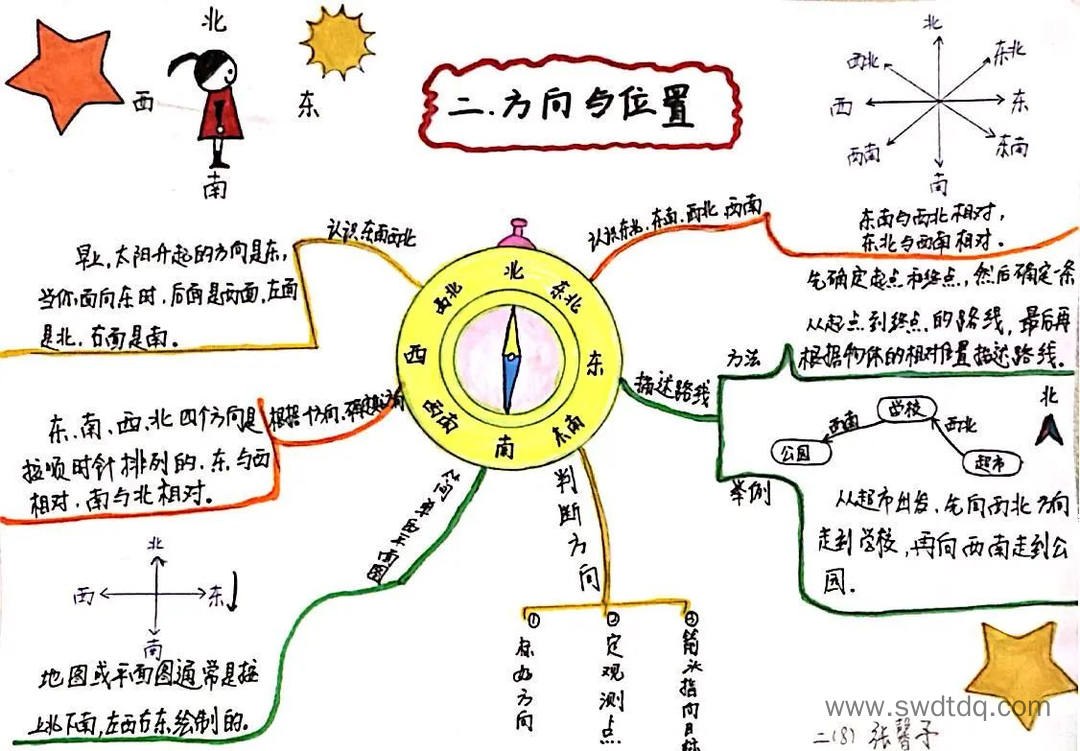 北
西
东
南
二.方向与位置
北
西北
东北
西
东
西南
东南
南
认识东南西北
早上,太阳升起的方向是东,
当你面向东时,后面是西面,左面
是北,右面是南。
认识东北、东南、西北、西南
东南与西北相对,
东北与西南相对.
北
西北
东北
西
东
西南
东南
南
根据一个方向,确定其它方向
东、南、西、北四个方向是
按顺时针排列的.东与西
相对,南与北相对。
描述路线
方法
先确定起点和终点,然后确定一条
从起点到终点的路线,最后再
根据物体的相对位置描述路线.
北
学校
西南
西北
公园
超市
举例
从超市出发,先向西北方向
走到学校,再向西南走到公
园.
平面图
北
西
东
南
地图或平面图通常是按
上北下南,左西右东绘制的.
判断方向
①
标好方向
②
定观测点
③
箭头指向目标
www.swdtdq.com
二(8) 张馨子